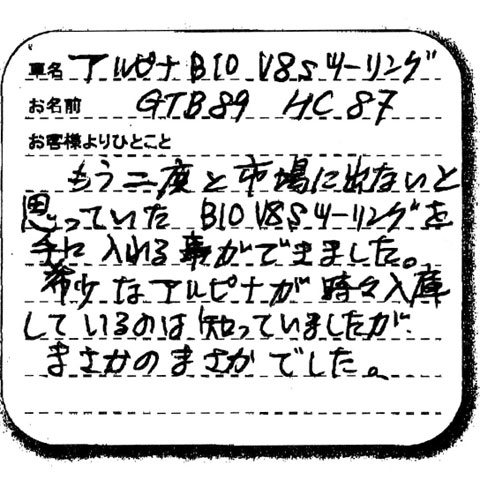 車名 アルピナ B10 V8S ツーリング
お名前 GTB89 HC87
お客様よりひとこと
もう二度と市場に出ないと
思っていた B10 V8S ツーリングを
手に入れる事ができました。
希少なアルピナが時々入庫
しているのは知っていましたが、
まさかのまさかでした。